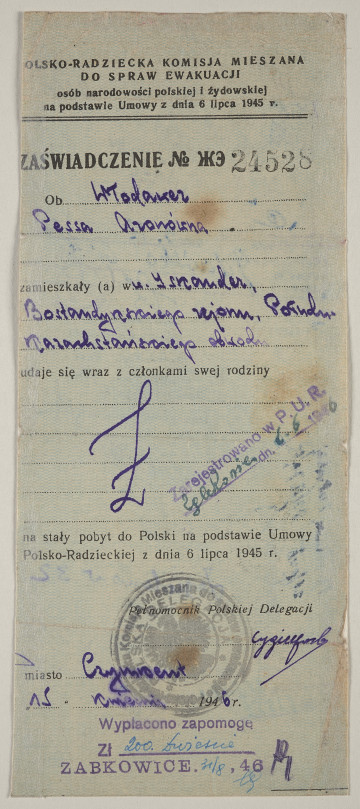 OLSKO-RADZIECKA KOMISJA MIESZANA
DO SPRAW EWAKUACJI
osób narodowości polskiej i żydowskiej
na podstawie Umowy z dnia 6 lipca 1945 r.
ZAŚWIADCZENIE № ЖЭ 24528
Ob. Włodawer
Pessa Aronówna
zamieszkały (a) w u. Iskander,
Bostandykskiego rejonu, Połudn.
Kazachstańskiego obwodu
udaje się wraz z członkami swej rodziny
Z
Zarejestrowano w P. U. R.
dn. 6.6 1946
na stały pobyt do Polski na podstawie Umowy
Polsko-Radzieckiej z dnia 6 lipca 1945 r.
Pełnomocnik Polskiej Delegacji
miasto Czymkent
15 kwietnia 1946 r.
Wypłacono zapomogę
Zł 200 dwieście
ZĄBKOWICE 31/8, 46